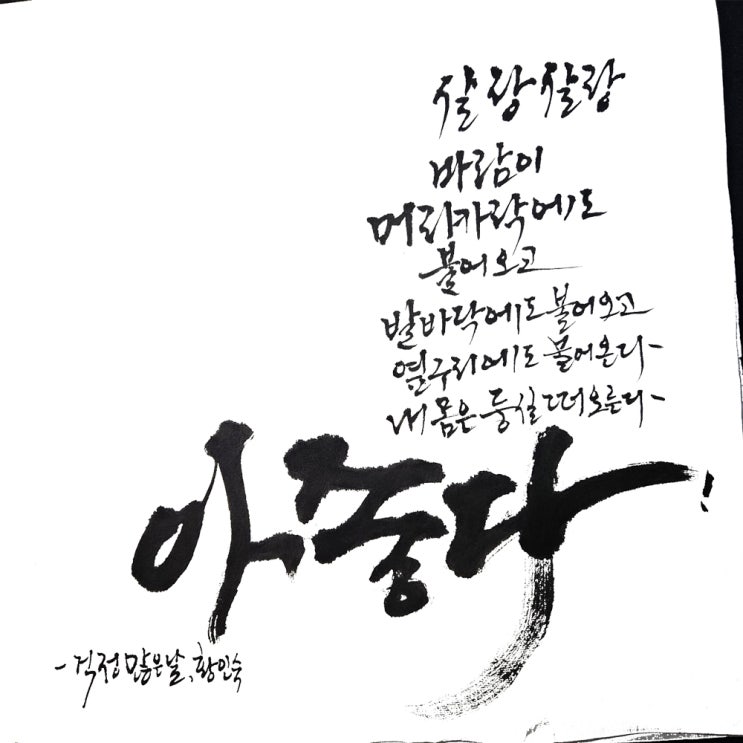 살랑살랑
바람이
머리카락에도
불어오고
발바닥에도 불어오고
옆구리에도 불어온다~
내 몸은 둥실 떠오른다~
아, 좋다!
- 걱정 많은 날, 황인숙